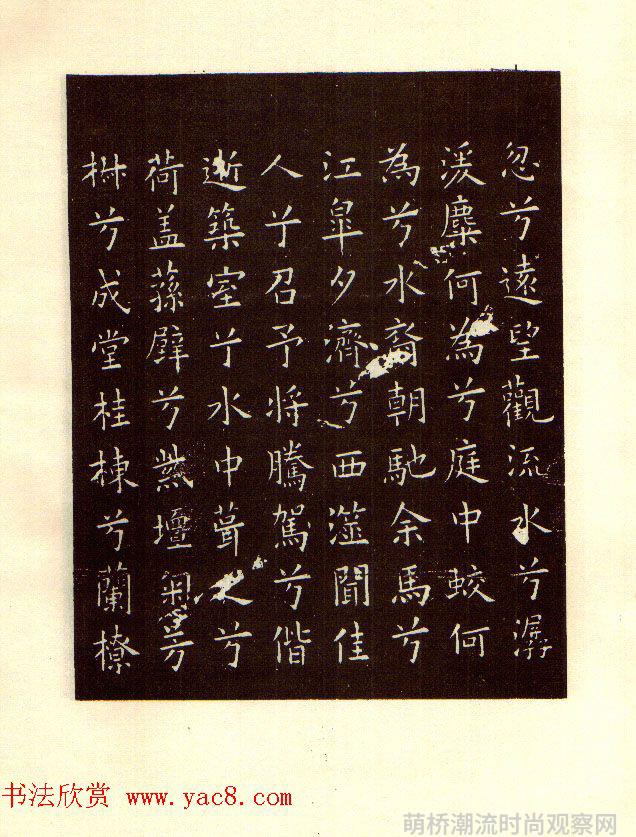 忽兮遠望觀流水兮潺
湲麋何為兮庭中蛟何
為兮水裔朝馳余馬兮
江皋夕濟兮西澨聞佳
人兮召予將騰駕兮偕
逝築室兮水中葺之兮
荷盖蓀壁兮紫壇芳
椒兮成堂桂棟兮蘭橑
书法欣赏 www.yac8.com
萌桥潮流时尚观察网